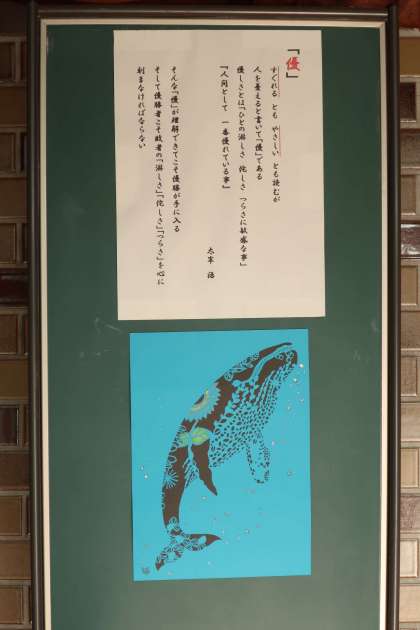 「優」
すぐれる とも やさしい とも読むが
人を憂えると書いて「優」である
優しさとは「ひとの淋しさ 侘しさ つらさに敏感な事」
「人間として 一番優れている事」
太宰 治
そんな「優」が理解できてこそ優勝が手に入る
そして優勝者こそ敗者の「淋しさ」「侘しさ」「つらさ」を心に
刻まなければならない